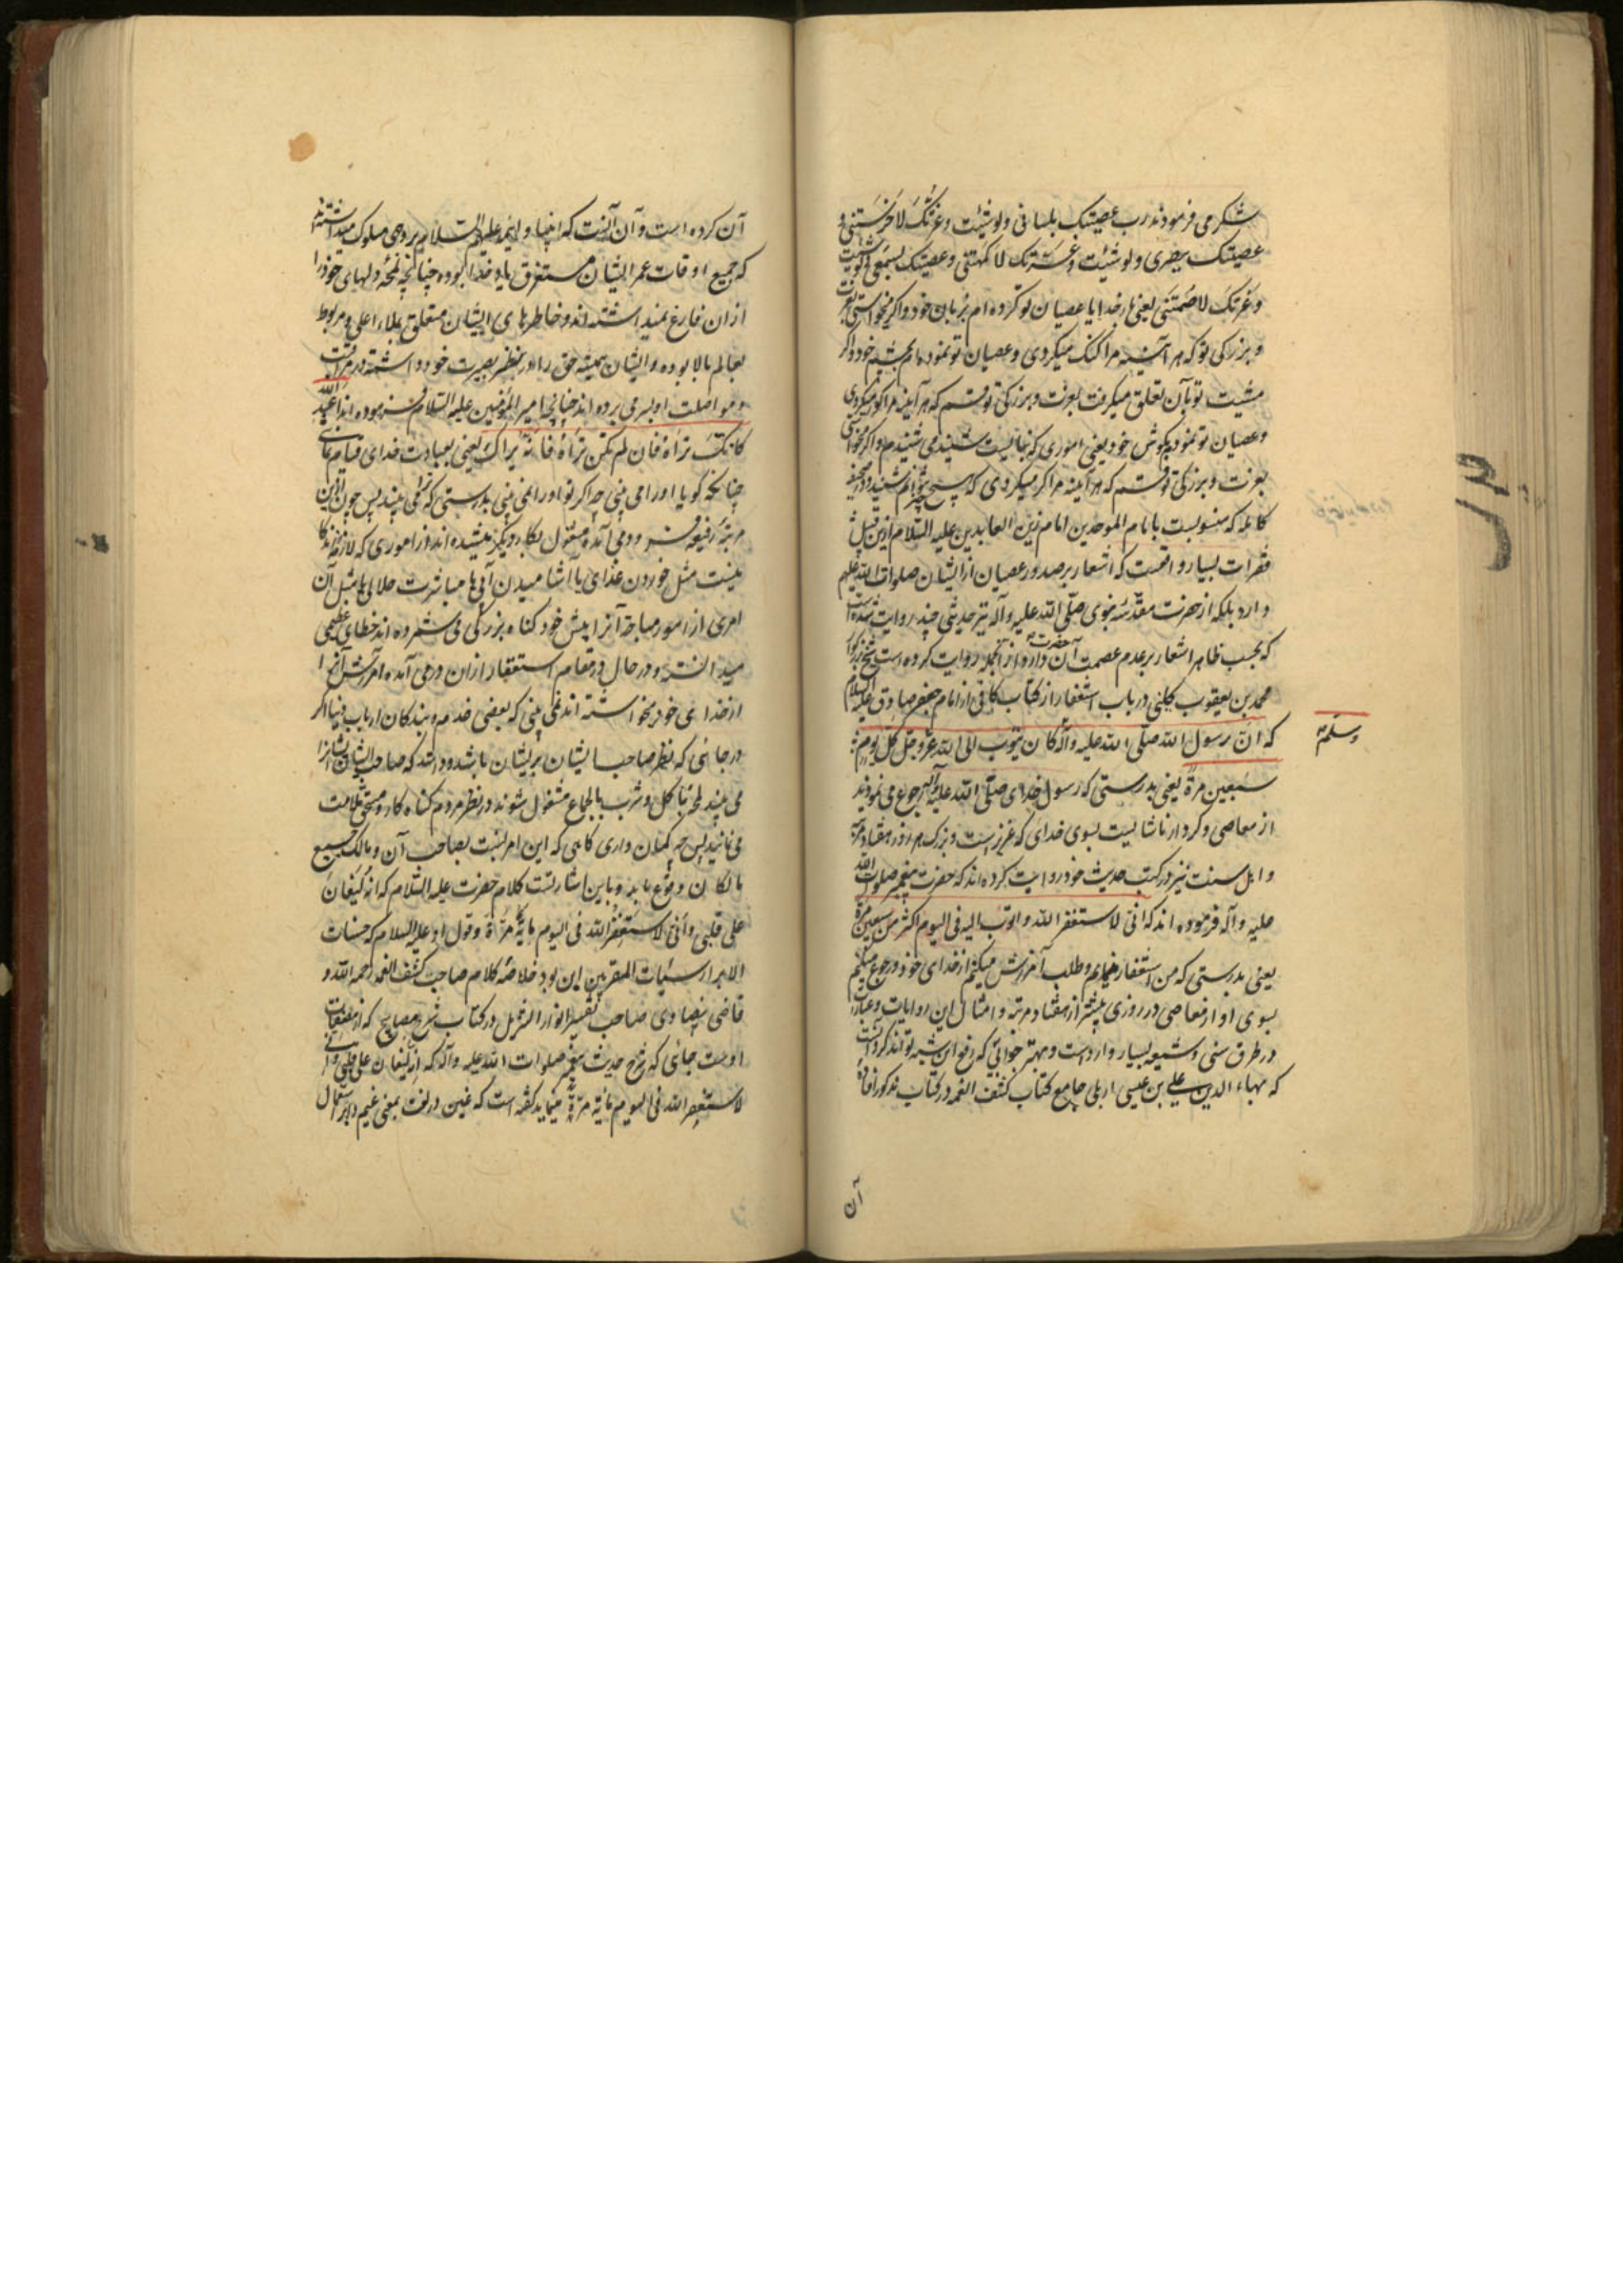 شکر می فرمودند رب عصیتک بلسانی ولو شئت وعزتک لاخرستنی و
عصیتک ببصری ولو شئت وعزتک لاکمهتنی وعصیتک بسمعی ولو شئت
وعزتک لاصممتنی یعنی بار خدایا عصیان تو کرده ام بزبان خود و اگر میخواستی بعزت
و بزرگی تو که هر آینه مرا گنگ میکردی و عصیان تو نموده ام بچشم خود و اگر
مشیت تو بآن تعلق میگرفت بعزت و بزرگی تو قسم که هر آینه مرا کور میکردی
وعصیان تو نموده بگوش خود یعنی اموری که نبایست شنید می شنیدم و اگر میخواستی
بعزت و بزرگی تو قسم که هر آینه مرا کر میکردی که هیچ چیز نتوانم شنید و در صحیفه
کامله که منسوبست بامام الموحدین امام زین العابدین علیه السلام ازین قبیل
فقرات بسیار واقعست که اشعار بر صدور عصیان از ایشان صلوات الله علیهم
دارد بلکه از حضرت مقدسه نبوی صلی الله علیه وآله نیز حدیثی چند روایت شده است
که بحسب ظاهر اشعار بر عدم عصمت آن حضرت دارد و از آنجمله روایت کرده است شیخ بزرگوار
محمد بن یعقوب کلینی در باب استغفار از کتاب کافی از امام جعفر صادق علیه السلام
که ان رسول الله صلی الله علیه وآله کان یتوب الی الله عز وجل کل یوم
وسلم
سبعین مرة یعنی بدرستی که رسول خدای صلی الله علیه وآله رجوع می نمودند
از معاصی و کردار ناشایست بسوی خدای که عزیز است و بزرگ هر روز هفتاد مرتبه
و اهل سنت نیز در کتب حدیث خود روایت کرده اند که حضرت پیغمبر صلوات الله
علیه وآله فرموده اند که انی لاستغفر الله واتوب الیه فی الیوم اکثر من سبعین مرة
یعنی بدرستی که من استغفار مینمایم و طلب آمرزش میکنم از خدای خود و رجوع میکنم
بسوی او از معاصی در روزی بیشتر از هفتاد مرتبه و امثال این روایات و عبارات
در طرق سنی و شیعه بسیار وارد است و بهتر جوابی که رفع این شبهه تواند کرد آنست
که بهاء الدین علی بن عیسی اربلی جامع کتاب کشف الغمه در کتاب مذکور افاده
آن
آن کرده است و آن آنست که انبیا و ائمه علیهم السلام بر وجهی سلوک میداشته اند
که جمیع اوقات عمر ایشان مستغرق یاد خدا بوده چنانچه لمحه دلهای خود را
ازان فارغ نمیداشته اند و خاطرهای ایشان متعلق بملاء اعلی و مربوط
بعالم بالا بوده و ایشان همیشه حق را در نظر بصیرت خود داشته در مراقبت
و مواصلت او بسر می برده اند چنانچه امیر المؤمنین علیه السلام فرموده اند اعبد الله
کانک تراه فان لم تکن تراه فانه یراک یعنی بعبادت خدای قیام نمای
چنانکه گویا او را می بینی چه اگر تو او را نمی بینی بدرستی که او ترا می بیند پس چون ازین
مرتبه رفیعه فرود می آمده مشغول بکار دیگر میشده اند از اموری که
نیست مثل خوردن غذای یا اشامیدن آبی یا مباشرت حلالی یا مثل آن
امری از امور مباحة آنرا پیش خود گناه بزرگی می شمرده اند خطای عظیمی
میدانسته و در حال در مقام استغفار ازان درمی آمده آمرزش آنرا
از خدای خود میخواسته اند نمی بینی که بعضی خدمه و بندگان ارباب دنیا اگر
در جائی که نظر صاحب ایشان بر ایشان باشد و دانند که صاحب ایشان ایشانرا
می بیند لمحه باکل و شرب یا جماع مشغول شوند در نظر مردم گناه کار و مستحق ملامت
می نمایند پس چه گمان داری گاهی که این امر نسبت بصاحب آن و مالک جمیع
مالکان وقوع یابد و باین اشارتست کلام حضرت علیه السلام که انه لیغان
علی قلبی وانی لاستغفر الله فی الیوم مایة مرة و قول او علیه السلام که حسنات
الابرار سیئات المقربین این بود خلاصه کلام صاحب کشف الغمه رحمه الله و
قاضی بیضاوی صاحب تفسیر انوار التنزیل در کتاب شرح مصابیح که از مصنفات
اوست جائی که شرح حدیث پیغمبر صلوات الله علیه وآله که انه لیغان علی قلبی وانی
لاستغفر الله فی الیوم مائة مرة مینماید گفته است که غین در لغت بمعنی غیم